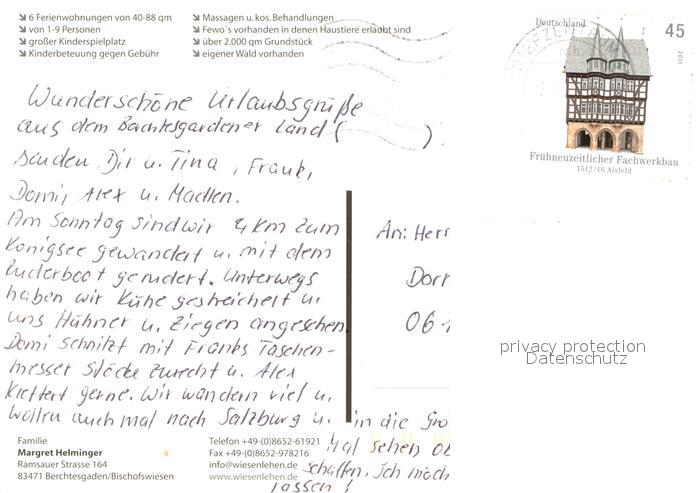 6 Ferienwohnungen von 40-88 qm
von 1-9 Personen
großer Kinderspielplatz
Kinderbeteuung gegen Gebühr
Massagen u. kos. Behandlungen
Fewo´s vorhanden in denen Haustiere erlaubt sind
über 2.000 qm Grundstück
eigener Wald vorhanden
Deutschland
45
2011
BRIEFZENTRUM
Frühneuzeitlicher Fachwerkbau
1512/16 Alsfeld
Wunderschöne Urlaubsgrüße
aus dem Berchtesgardener Land (          )
senden Dir u. Tina, Frank,
Domi, Alex u. Madlen.
Am Sonntag sind wir 4 km zum
Königsee gewandert u. mit dem
Ruderboot gerudert. Unterwegs
haben wir Kühe gestreichelt u.
uns Hühner u. Ziegen angesehen.
Domi schnitzt mit Franks Taschen-
messer Stöcke zurecht u. Alex
klettert gerne. Wir wandern viel u.
wollen auch mal nach Salzburg u. in die Gro
Mal sehen ob
schaffen. Ich möch
lassen!
An: Herr
Dorn
06
privacy protection
Datenschutz
Familie
Margret Helminger
Ramsauer Strasse 164
83471 Berchtesgaden/Bischofswiesen
Telefon +49-(0)8652-61921
Fax +49-(0)8652-978216
info@wiesenlehen.de
www.wiesenlehen.de